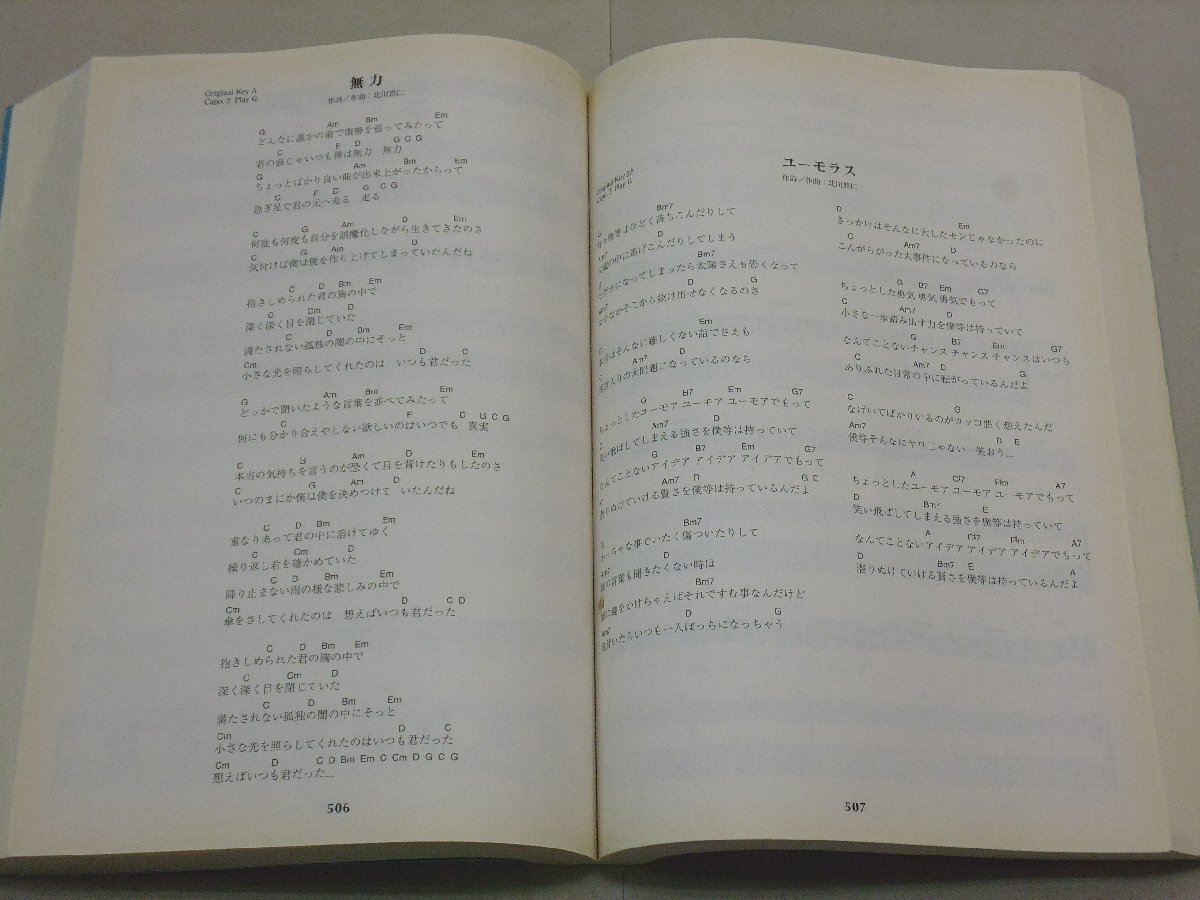 無力
Original Key A
Capo. 2 Play G
作詩／作曲：北川悠仁
G Am Bm Em
どんなに誰かの前で虚勢を張ってみたって
C F D G C G
君の前じゃいつも僕は無力 無力
G Am Bm Em
ちょっとばかり良い曲が出来上がったからって
C F D G C G
急ぎ足で君の元へ走る 走る
C G Am D Em
何度も何度も自分を誤魔化しながら生きてきたのさ
C G Am D
気付けば僕は僕を作り上げてしまっていたんだね
C D Bm Em
抱きしめられた君の胸の中で
C Cm D
深く深く目を閉じていた
C D Bm Em
満たされない孤独の闇の中にそっと
Cm D C
小さな光を照らしてくれたのは いつも君だった
G Am Bm Em
どっかで聞いたような言葉を並べてみたって
C F D G C G
何にも分かり合えやしない欲しいのはいつでも 真実
C G Am D Em
本当の気持ちを言うのが恐くて目を背けたりもしたのさ
C G Am D
いつのまにか僕は僕を決めつけて いたんだね
C D Bm Em
重なりあって君の中に溶けてゆく
C Cm D
繰り返し君を確かめていた
C D Bm Em
降り止まない雨の様な悲しみの中で
Cm D C D
傘をさしてくれたのは 想えばいつも君だった
C D Bm Em
抱きしめられた君の胸の中で
C Cm D
深く深く目を閉じていた
C D Bm Em
満たされない孤独の闇の中にそっと
Cm D C
小さな光を照らしてくれたのはいつも君だった
Cm D C D Bm Em C Cm D G C G
想えばいつも君だった…
506
ユーモラス
Original Key A
Capo. 2 Play G
作詩／作曲：北川悠仁
G Bm7
僕等はひどく落ちこんだりして
Am7 D
の中に逃げこんだりしてしまう
G Bm7
になってしまったら太陽さえも恐くなって
Am7 D G
なかそこから抜け出せなくなるのさ
D Em
そんなに難しくない話でさえも
C Am7 D
入りの大問題になっているのなら
G B7 Em G7
ちょっとしたユーモア ユーモア ユーモアでもって
C Am7 D
笑い飛ばしてしまえる強さを僕等は持っていて
G B7 Em G7
なんてことないアイデア アイデア アイデアでもって
C Am7 D G C
ぬけていける賢さを僕等は持っているんだよ
G Bm7
ちゃな事でいたく傷ついたりして
Am7 D
の言葉も聞きたくない時は
Bm7
鍵をかけちゃえばそれですむ事なんだけど
Am7 D G
いたらいつも一人ぼっちになっちゃう
D Em
きっかけはそんなに大したモンじゃなかったのに
C Am7 D
こんがらがった大事件になっているのなら
G B7 Em G7
ちょっとした勇気 勇気 勇気でもって
C Am7 D
小さな一歩踏み出す力を僕等は持っていて
G B7 Em G7
なんてことないチャンス チャンス チャンスはいつも
C Am7 D G
ありふれた日常の中に転がっているんだよ
C G
なげいてばかりいるのがカッコ悪く想えたんだ
Am7 D E
僕等そんなにヤワじゃない 笑おう…
A C♯7 F♯m A7
ちょっとしたユーモア ユーモア ユーモアでもって
D Bm7 E
笑い飛ばしてしまえる強さを僕等は持っていて
A C♯7 F♯m A7
なんてことないアイデア アイデア アイデアでもって
D Bm7 E A
潜りぬけていける賢さを僕等は持っているんだよ
507